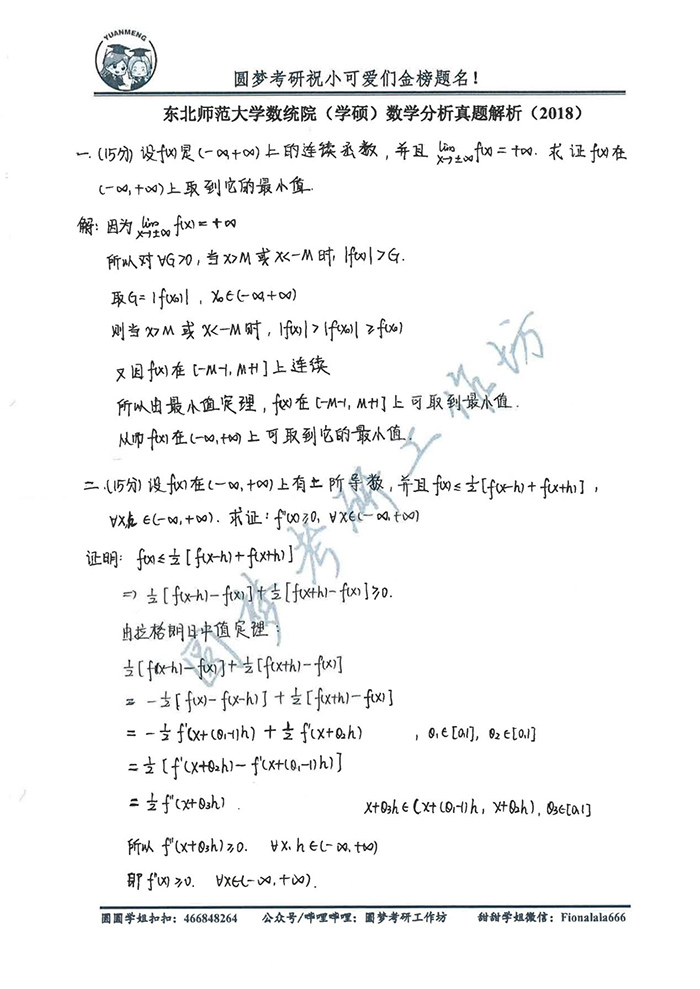 YUANMENG
圆梦考研祝小可爱们金榜题名！
东北师范大学数统院（学硕）数学分析真题解析（2018）
一.(15分) 设f(x)是(-∞,+∞)上的连续函数,并且 lim x→±∞ f(x)=+∞. 求证f(x)在
(-∞,+∞)上取到它的最小值.
解: 因为 lim x→±∞ f(x)=+∞
所以对∀G>0, 当x>M或x<-M时, |f(x)|>G.
取G=|f(x₀)|, x₀∈(-∞,+∞)
则当x>M或x<-M时, |f(x)|>|f(x₀)|≥f(x₀)
又因f(x)在[-M-1, M+1]上连续
所以由最小值定理, f(x)在[-M-1, M+1]上可取到最小值.
从而f(x)在(-∞,+∞)上可取到它的最小值.
二.(15分) 设f(x)在(-∞,+∞)上有二阶导数, 并且f(x)≤½[f(x-h)+f(x+h)],
∀x,h∈(-∞,+∞). 求证: f''(x)≥0, ∀x∈(-∞,+∞)
证明: f(x)≤½[f(x-h)+f(x+h)]
⇒ ½[f(x-h)-f(x)]+½[f(x+h)-f(x)]≥0.
由拉格朗日中值定理:
½[f(x-h)-f(x)]+½[f(x+h)-f(x)]
= -½[f(x)-f(x-h)]+½[f(x+h)-f(x)]
= -½f'(x+(θ₁-1)h)+½f'(x+θ₂h) , θ₁∈[0,1], θ₂∈[0,1]
= ½[f'(x+θ₂h)-f'(x+(θ₁-1)h)]
= ½f''(x+θ₃h). x+θ₃h∈(x+(θ₁-1)h, x+θ₂h), θ₃∈[0,1]
所以 f''(x+θ₃h)≥0. ∀x,h∈(-∞,+∞)
即 f''(x)≥0. ∀x∈(-∞,+∞).
圆梦考研工作坊
圆圆学姐扣扣：466848264 公众号/哔哩哔哩：圆梦考研工作坊 甜甜学姐微信：Fionalala666